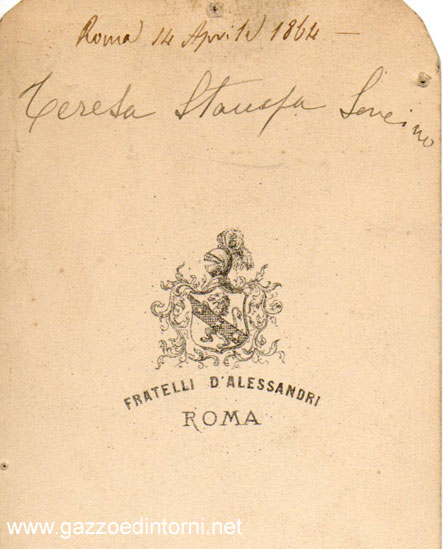 Roma 14 Aprile 1864 –
Teresa Stampa Soncino
FRATELLI D'ALESSANDRI
ROMA
www.gazzoedintorni.net